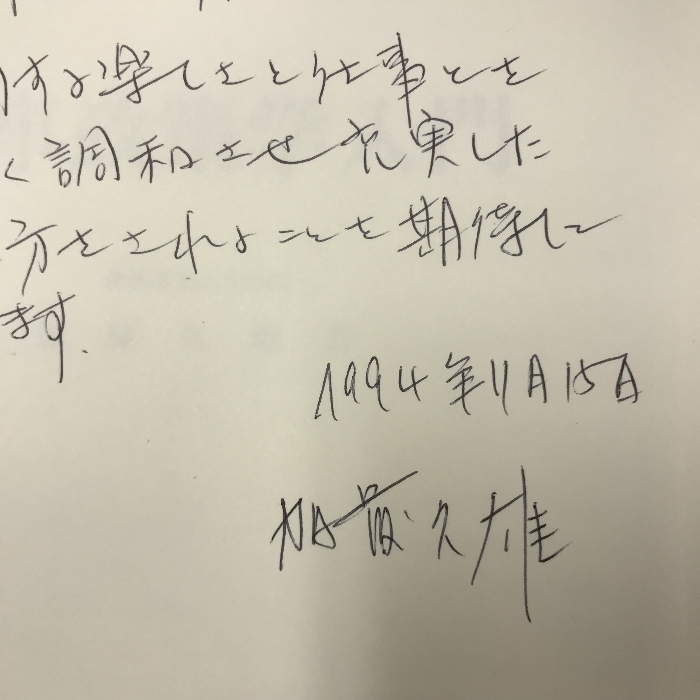 する楽しさと仕事とを
く調和させ充実した
方をされることを期待して
ます.
1994年11月15日
久雄